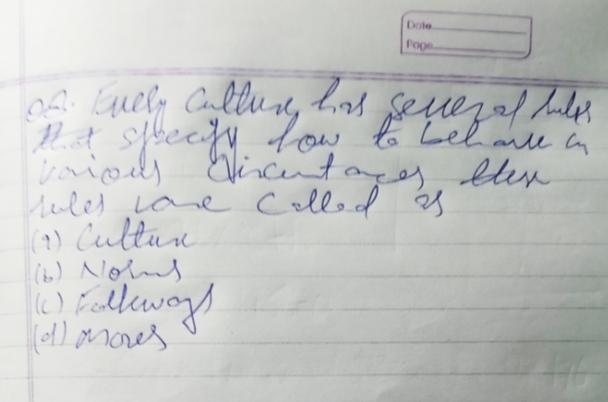 Date
Page
Q2. Every Culture has several rules
that specify how to behave in
various Circumtances these
rules are Called as
(a) Culture
(b) Norms
(c) Folkways
(d) mores